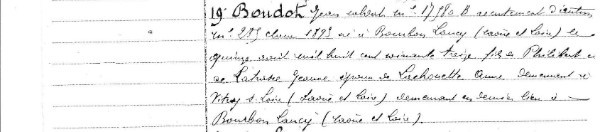 19° Boudot Jean subst. m.le 17980 B recrutement d'Autun
m.le 283 classe 1893 né à Bourbon Lancy (Saône et Loire) le
quinze avril mil huit cent soixante treize fils de Philibert et
de Jeanne époux de Anne, demeurant à
Vitry s Loire (Saône et Loire) demeurant en dernier lieu à
Bourbon Lancy (Saône et Loire).